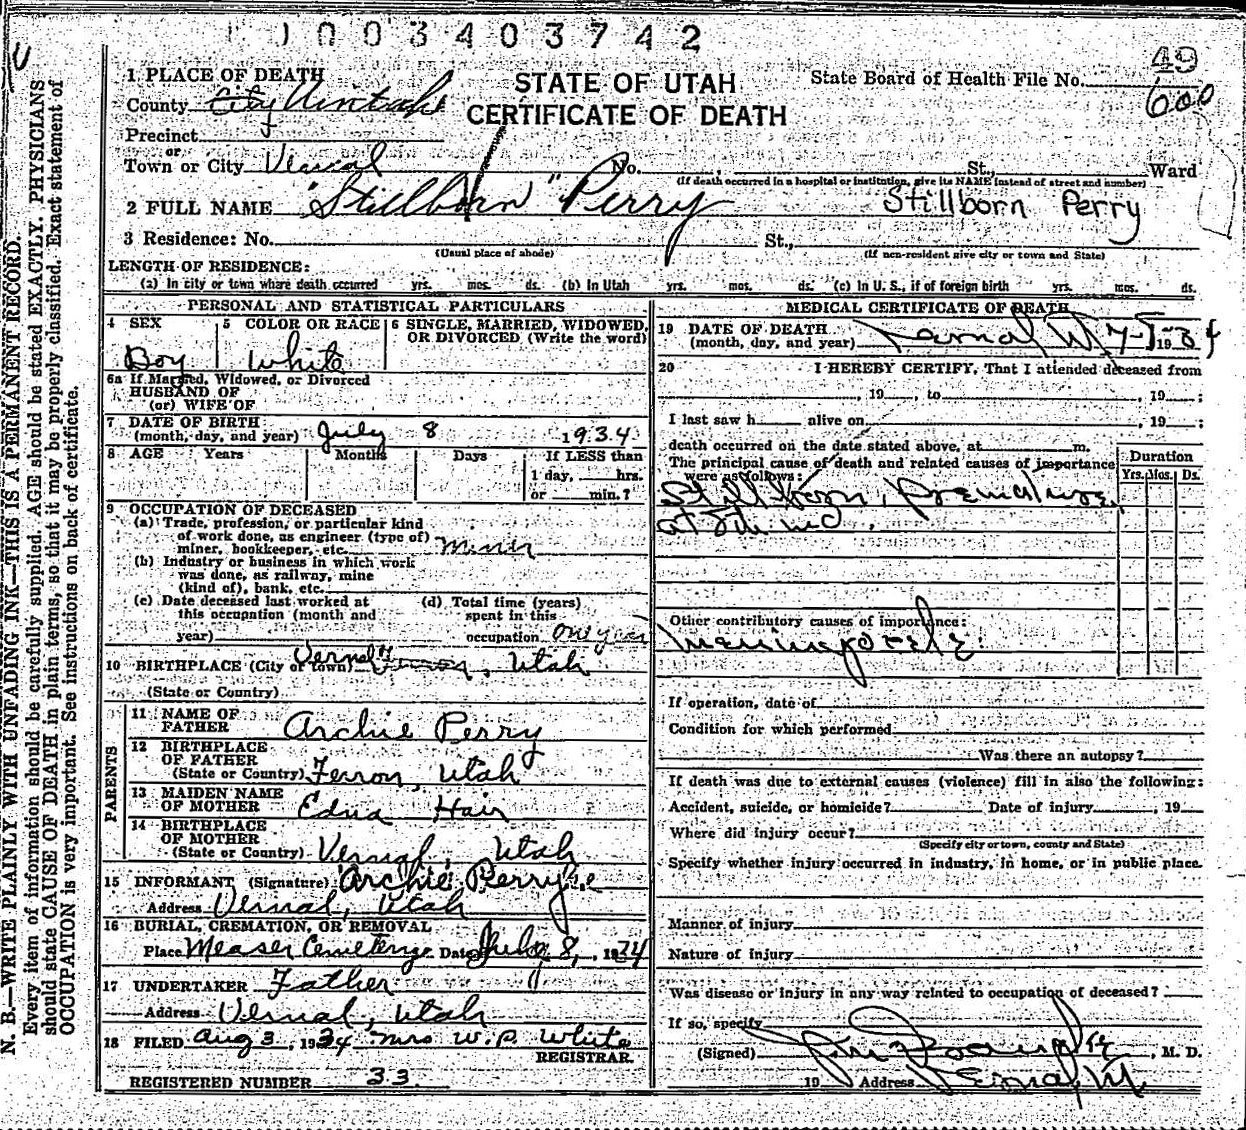 1003403742
49
600
1 PLACE OF DEATH
STATE OF UTAH
CERTIFICATE OF DEATH
State Board of Health File No.
County City Uintah
Precinct
or
Town or City Vernal No. St., Ward
(If death occurred in a hospital or institution, give its NAME instead of street and number)
2 FULL NAME "Stillborn" Perry Stillborn Perry
3 Residence: No. St.,
(Usual place of abode) (If non-resident give city or town and State)
LENGTH OF RESIDENCE:
(a) In city or town where death occurred yrs. mos. ds. (b) In Utah yrs. mos. ds. (c) In U. S., if of foreign birth yrs. mos. ds.
PERSONAL AND STATISTICAL PARTICULARS
4 SEX 5 COLOR OR RACE 6 SINGLE, MARRIED, WIDOWED, OR DIVORCED (Write the word)
Boy White
6a If Married, Widowed, or Divorced
HUSBAND OF
(or) WIFE OF
7 DATE OF BIRTH
(month, day, and year) July 8 1934
8 AGE Years Months Days If LESS than
1 day, hrs.
or min.?
9 OCCUPATION OF DECEASED
(a) Trade, profession, or particular kind
of work done, as engineer (type of)
miner, bookkeeper, etc. miner
(b) Industry or business in which work
was done, as railway, mine
(kind of), bank, etc.
(c) Date deceased last worked at
this occupation (month and
year)
(d) Total time (years)
spent in this
occupation one year
10 BIRTHPLACE (City or town) Vernal Ferron, Utah
(State or Country)
PARENTS
11 NAME OF
FATHER Archie Perry
12 BIRTHPLACE
OF FATHER
(State or Country) Ferron, Utah
13 MAIDEN NAME
OF MOTHER Edna Hair
14 BIRTHPLACE
OF MOTHER
(State or Country) Vernal, Utah
15 INFORMANT (Signature) Archie Perry
Address Vernal, Utah
16 BURIAL, CREMATION, OR REMOVAL
Place Measer Cemetery Date July 8, 1934
17 UNDERTAKER Father
Address Vernal, Utah
18 FILED Aug 3, 1934 Mrs W. P. White
REGISTRAR.
REGISTERED NUMBER 33
MEDICAL CERTIFICATE OF DEATH
19 DATE OF DEATH
(month, day, and year) 1934
20 I HEREBY CERTIFY, That I attended deceased from
, 19 , to , 19 ;
I last saw h alive on , 19 ;
death occurred on the date stated above, at m.
The principal cause of death and related causes of importance
were as follows:
Duration
Yrs. Mos. Ds.
Stillborn, Premature
at
Other contributory causes of importance:
meningocele
If operation, date of
Condition for which performed
Was there an autopsy?
If death was due to external causes (violence) fill in also the following:
Accident, suicide, or homicide? Date of injury , 19
Where did injury occur?
(Specify city or town, county and State)
Specify whether injury occurred in industry, in home, or in public place.
Manner of injury
Nature of injury
Was disease or injury in any way related to occupation of deceased?
If so, specify
(Signed) , M. D.
19 Address Vernal, Ut
N. B.—WRITE PLAINLY WITH UNFADING INK—THIS IS A PERMANENT RECORD.
Every item of information should be carefully supplied. AGE should be stated EXACTLY. PHYSICIANS
should state CAUSE OF DEATH in plain terms, so that it may be properly classified. Exact statement of
OCCUPATION is very important. See instructions on back of certificate.